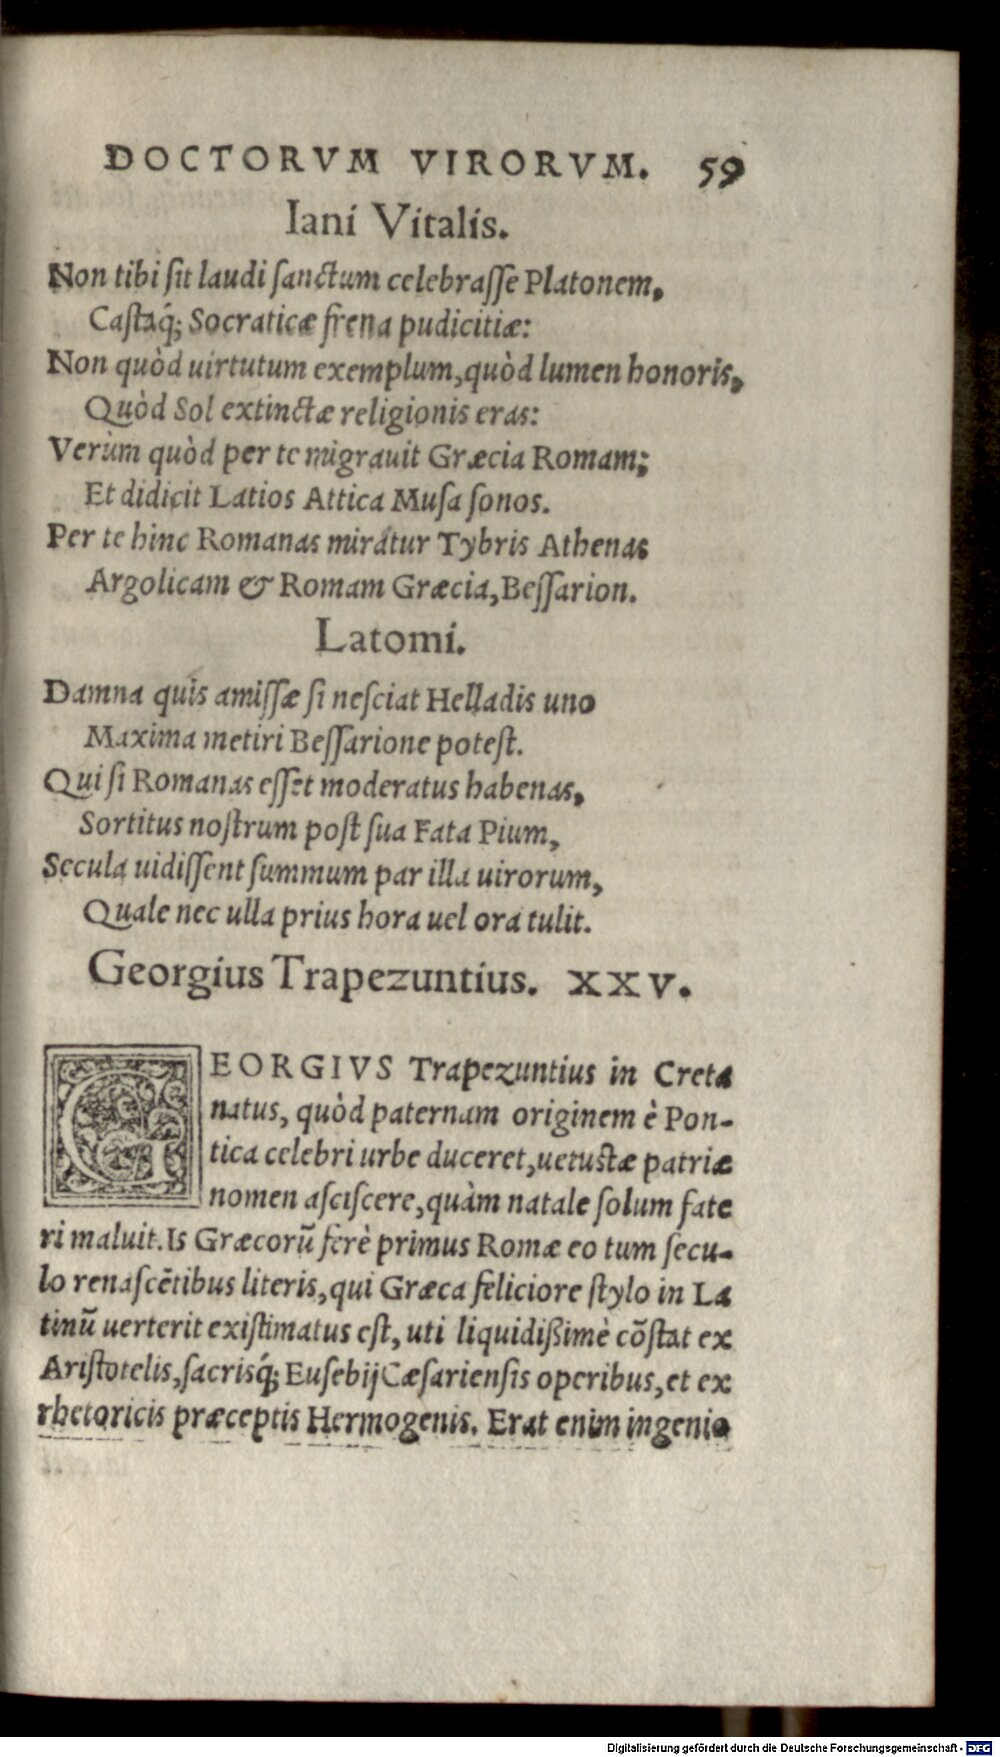 DOCTORVM VIRORVM. 59
Iani Vitalis.
Non tibi ſit laudi ſanctum celebraſſe Platonem,
Caſtaq́; Socraticæ frena pudicitiæ:
Non quòd uirtutum exemplum, quòd lumen honoris,
Quòd Sol extinctæ religionis eras:
Verùm quòd per te migrauit Græcia Romam;
Et didicit Latios Attica Muſa ſonos.
Per te hinc Romanas mirátur Tybris Athenas
Argolicam & Romam Græcia, Beſſarion.
Latomi.
Damna quis amiſſæ ſi neſciat Helladis uno
Maxima metiri Beſſarione poteſt.
Qui ſi Romanas eſſet moderatus habenas,
Sortitus noſtrum poſt ſua Fata Pium,
Secula uidiſſent ſummum par illa uirorum,
Quale nec ulla prius hora uel ora tulit.
Georgius Trapezuntius. XXV.
GEORGIVS Trapezuntius in Creta
natus, quòd paternam originem è Pon-
tica celebri urbe duceret, uetustæ patriæ
nomen aſciſcere, quàm natale ſolum fate
ri maluit. Is Græcorũ ferè primus Romæ eo tum ſecu-
lo renaſcẽtibus literis, qui Græca feliciore ſtylo in La
tinũ uerterit exiſtimatus eſt, uti liquidißimè cõſtat ex
Ariſtotelis, ſacrisq́; Euſebij Cæſarienſis operibus, et ex
rhetoricis præceptis Hermogenis. Erat enim ingenio
Digitalisierung gefördert durch die Deutsche Forschungsgemeinschaft - DFG